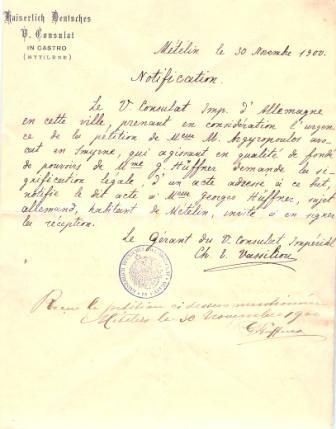 Kaiserlich Deutsches
V. Consulat
IN CASTRO
(MYTILENE)
Métélin le 30 Novembre 1900.
Notification.
Le V Consulat Imp. d'Allemagne
en cette ville, prenant en considération l'urgen
ce de la pétition de Mme M. Argyropoulos avo
cat en Smyrne, qui agissant en qualité de fondé
de pouvoirs de Mme J. Hüffner demande la si-
gnification légale, d'un acte adressé à ce but,
notifie le dit acte à Georges Hüffner, sujet
allemand, habitant de Métélin, invité à en signer
la réception.
Le Gérant du V. Consulat Impérial
Ch. E. Vassiliou
Reçu la pétition ci dessus mentionnée
Métélin le 30 novembre 1900
GHüffner